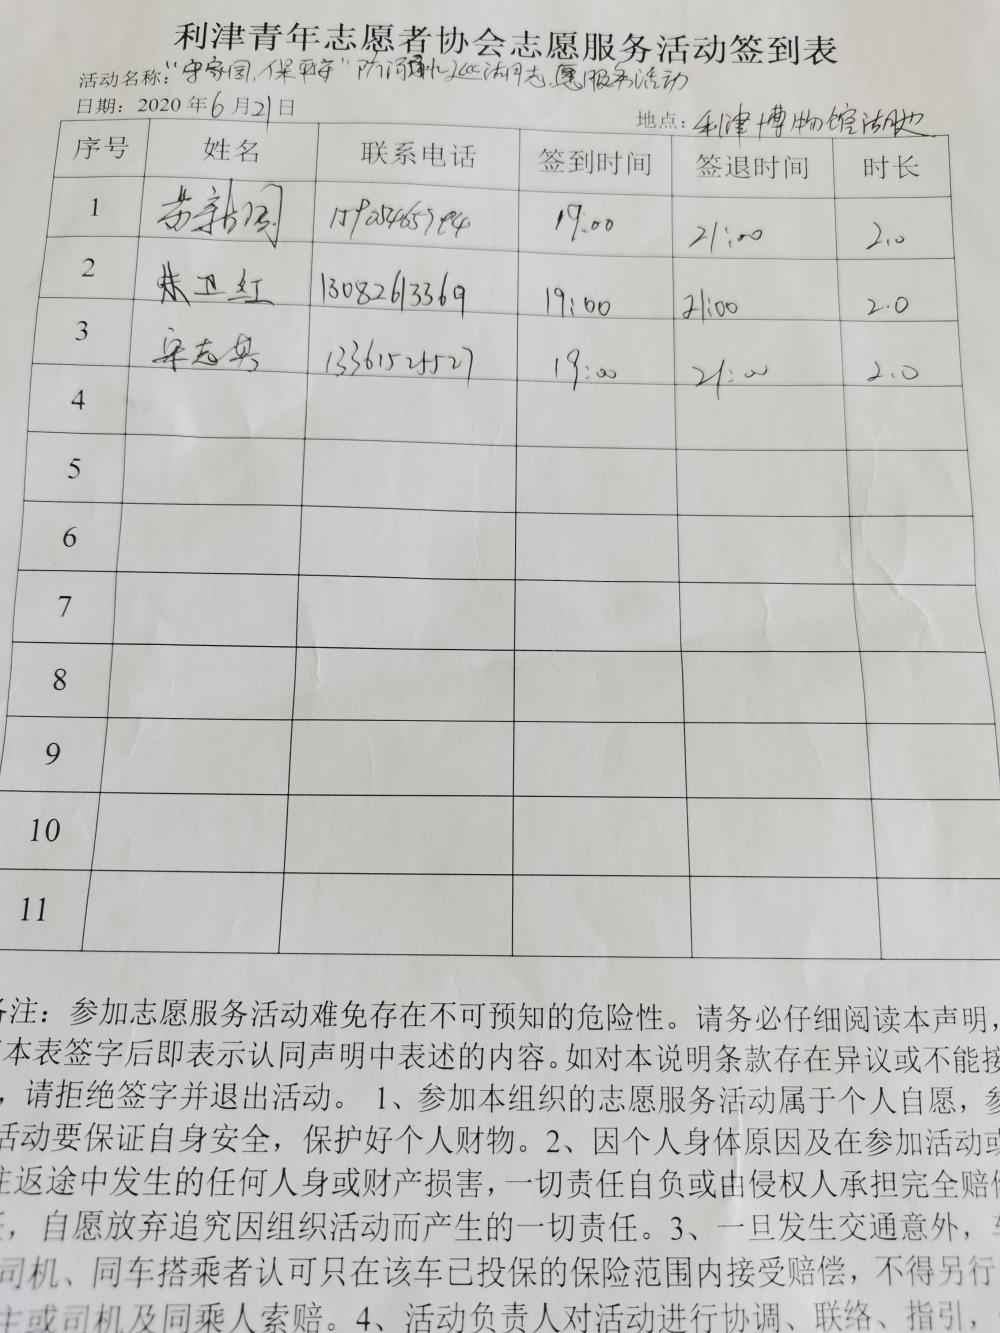 利津青年志愿者协会志愿服务活动签到表
活动名称："守家园，保平安"防河志愿服务活动
日期：2020年6月21日
地点：利津博物馆湖边
序号 姓名 联系电话 签到时间 签退时间 时长
1 苏新国 19:00 21:00 2.0
2 朱卫红 13082613369 19:00 21:00 2.0
3 宋志兵 13361525527 19:00 21:00 2.0
4
5
6
7
8
9
10
11
备注：参加志愿服务活动难免存在不可预知的危险性。请务必仔细阅读本声明，
本表签字后即表示认同声明中表述的内容。如对本说明条款存在异议或不能接
，请拒绝签字并退出活动。 1、参加本组织的志愿服务活动属于个人自愿，参
活动要保证自身安全，保护好个人财物。2、因个人身体原因及在参加活动或
往返途中发生的任何人身或财产损害，一切责任自负或由侵权人承担完全赔偿
，自愿放弃追究因组织活动而产生的一切责任。3、一旦发生交通意外，车
司机、同车搭乘者认可只在该车已投保的保险范围内接受赔偿，不得另行
主或司机及同乘人索赔。4、活动负责人对活动进行协调、联络、指引，